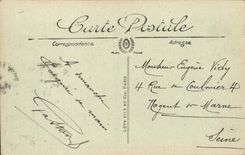 Carte Postale
Correspondance
Adresse
A dimanche
Monsieur Eugène Vidy
4 Rue de Coulmiers 4
Nogent s/ Marne
Seine